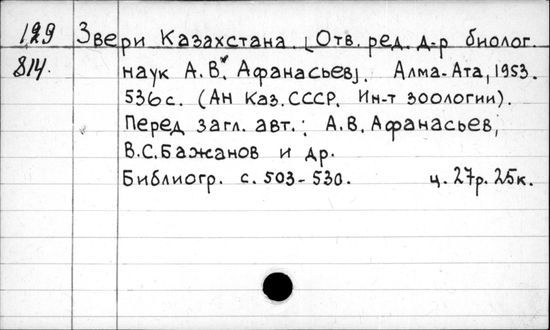 129 Звери Казахстана. [Отв. ред. д-р биолог.
814. наук А. В. Афанасьев]. Алма-Ата, 1953.
536 с. (Ан Каз. СССР. Ин-т зоологии).
Перед загл. авт.: А. В. Афанасьев,
В. С. Бажанов и др.
Библиогр. с. 503-530. ц. 27р. 25к.